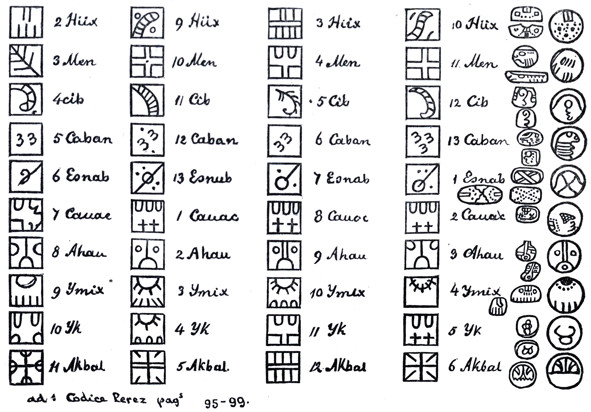 2 Hiix 9 Hiix 3 Hiix 10 Hiix
3 Men 10 Men 4 Men 11 Men
4 cib 11 Cib 5 Cib 12 Cib
5 Caban 12 Caban 6 Caban 13 Caban
6 Esnab 13 Esnub 7 Esnab 1 Esnab
7 Cauac 1 Cauac 8 Cauoc 2 Cauac
8 Ahau 2 Ahau 9 Ahau 3 Ahau
9 Ymix 3 Ymix 10 Ymix 4 Ymix
10 Yk 4 Yk 11 Yk 5 Yk
11 Akbal 5 Akbal 12 Akbal 6 Akbal
ad 1 Codice Perez pags 95-99.